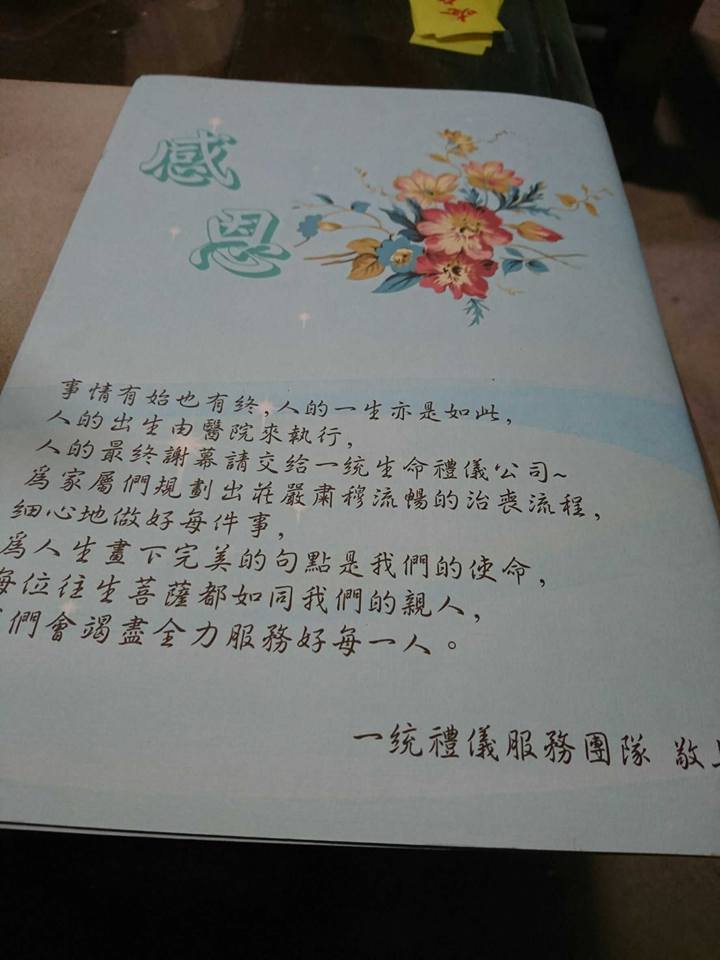 感
恩
事情有始也有終,人的一生亦是如此,
人的出生由醫院來執行,
人的最終謝幕請交給一統生命禮儀公司~
為家屬們規劃出莊嚴肅穆流暢的治喪流程,
細心地做好每件事,
為人生畫下完美的句點是我們的使命,
每位往生菩薩都如同我們的親人,
們會竭盡全力服務好每一人。
一統禮儀服務團隊 敬上